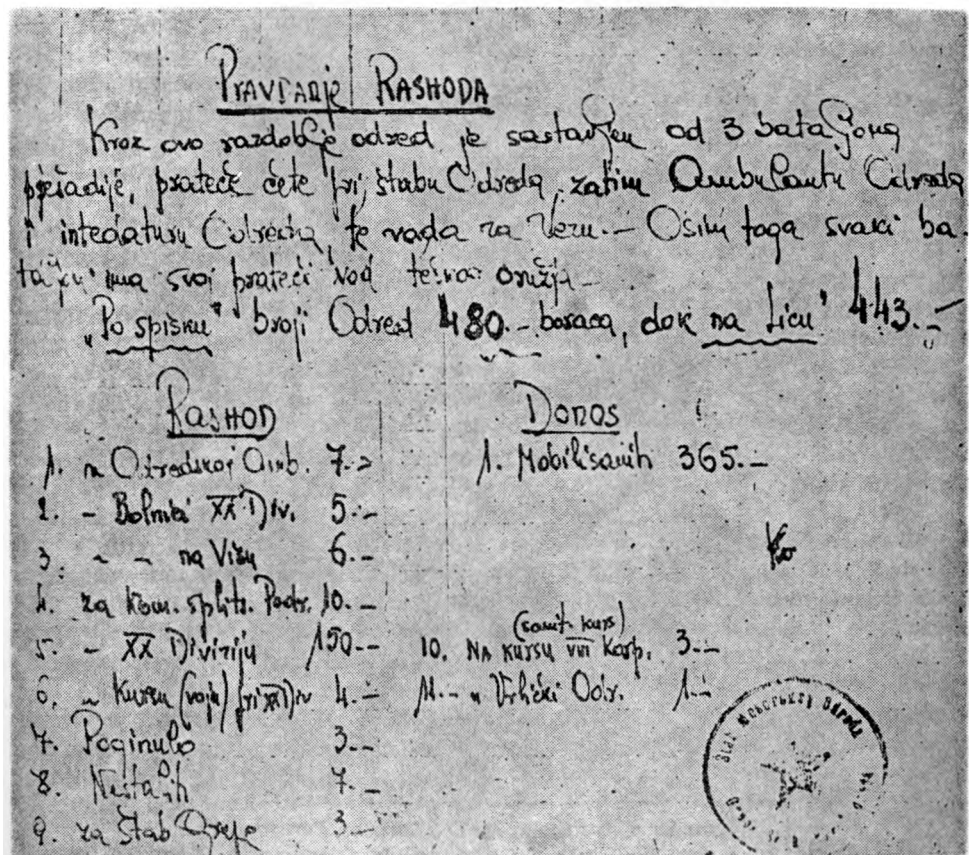 PRAVDANJE RASHODA
Kroz ovo razdoblje odred je sastavljen od 3 bataljona
pješadije, prateće čete pri štabu Odreda, zatim Ambulantu Odreda
i intendaturu Odreda, te voda za Vezu. — Osim toga svaki ba-
ima svoj prateći vod oružja —
„Po spisku" broji Odred 480.- boraca, dok na Licu" 443.-
RASHOD
1. u Odredskoj Amb. 7.-
2. - Bolnici XX Div. 5.-
3. - - na Visu 6.-
4. za Kom. splits. Podr. 10.-
5. - XX Diviziju 150.-
6. u Kursu (vojn) pri XX Div 4.-
7. Poginulo 3.-
8. Nestalih 7.-
9. za Štab 3.-
DONOS
1. Mobilisanih 365.-
(sanit. kurs)
10. NA KURSU VIII Korp. 3.-
11. - u Vrlički Odr. 1.-
Štab Mosorskog Odreda